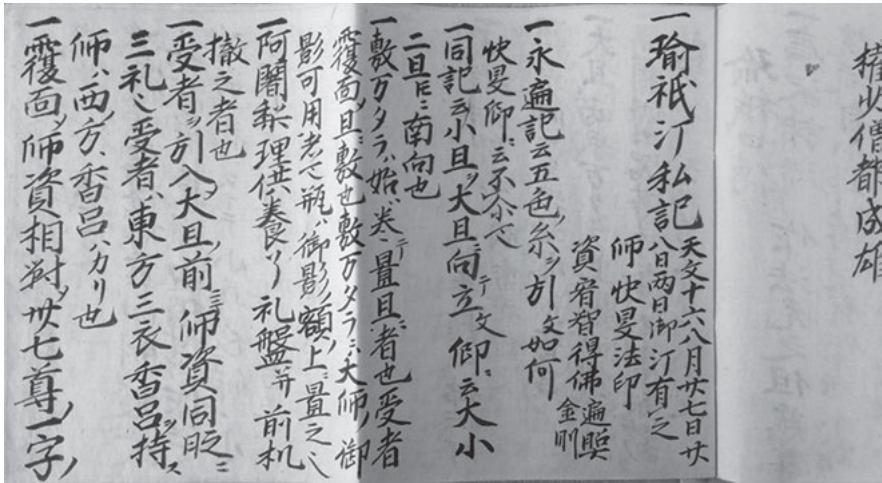 権少僧都成雄
一瑜祇汀私記 天文十六八月廿七日廿
八日両日御汀有之
師快旻法印
資宥智得佛遍照
金剛
一永遍記云五色ノ糸ヲ引文如何
快旻仰ニ云不尒云々
一同記云小旦ヲ大旦ニ向立テ文仰ニ云大小
二旦ヒニ南向也
一敷万タラハ始ハ巻テ置旦ニ者也受者
覆面ノ旦ニ敷也敷万タラニハ大師ノ御
影可用者也瓶ハ御影ノ額ノ上ニ置之
一阿闍梨理供養了礼盤并前机
撤之者也
一受者ヲ引入大旦ノ前ニ師資同
三礼受者ハ東方三衣香呂ヲ持ス
師ハ西方香呂ハカリ也
一覆面ノ師資相対ヲ卅七尊ノ一字ノ